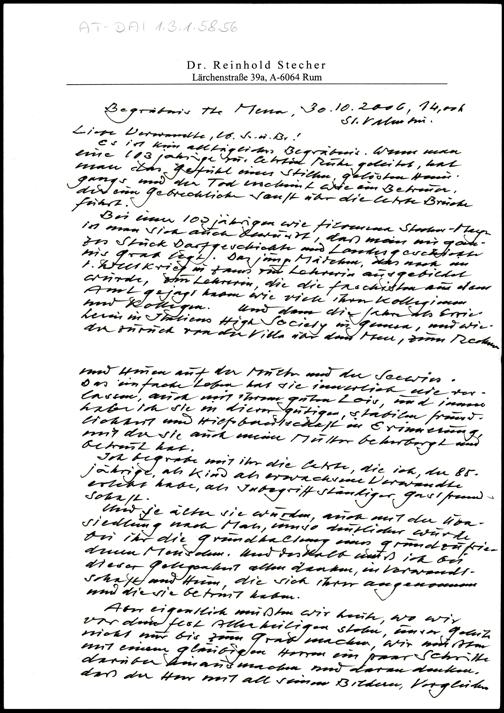 AT-DAI 1.3.1.58.56
Dr. Reinhold Stecher
Lärchenstraße 39a, A-6064 Rum
Begräbnis Mena, 30.10.2006, 14,00h
St. Valentin.
Liebe Verwandte, lb. S. u. Br.!
Es ist kein alltägliches Begräbnis. Wenn man
eine 103 jährige zur letzten Ruhe geleitet, hat
man das Gefühl eines stillen, gelösten Heim-
gangs und der Tod erscheint wie ein Betreuer,
der eine Gebrechliche sanft über die letzte Brücke
führt.
Bei einer 103 jährigen wie Filomena
ist man sich auch bewusst, daß man ein gan-
zes Stück Dorfgeschichte und Landesgeschichte
ins Grab legt. Das junge Mädchen, das noch im
1. Weltkrieg in Zams zur Lehrerin ausgebildet
wurde, die Lehrerin, die die Faschisten aus dem
Amt gejagt haben wie viele ihrer Kolleginnen
und Kollegen. Und dann die Jahre als Erzie-
herin in Italiens High Society in Genua, und wie-
der zurück von der Villa über dem Meer, zum Rechen
und Heuen auf der und der
Das einfache Leben hat sie innerlich nie ver-
lassen, auch mit ihrem guten Lois, und immer
habe ich sie in dieser gütigen, stabilen Freund-
lichkeit und Hilfsbereitschaft in Erinnerung,
mit der sie auch meine Mutter beherbergt und
betreut hat.
Ich begrabe mit ihr die letzte, die ich, der 85-
jährige, als Kind als erwachsene Verwandte
erlebt habe, als Inbegriff ständiger Gastfreund-
schaft.
Und je älter sie wurde, auch mit der Über-
siedlung nach Mals, umso deutlicher wurde
bei ihr die Grundhaltung eines grundzufrie-
denen Menschen. Und deshalb muß ich bei
dieser Gelegenheit allen danken, in Verwandt-
schaft und Heim, die sich ihrer angenommen
und die sie betreut haben.
Aber eigentlich müßten wir heute, wo wir
vor dem Fest Allerheiligen stehen, unser Geleite
nicht nur bis zum Grab machen, wir müßten
mit einem gläubigen Herzen ein paar Schritte
darüber hinausmachen und daran denken,
daß der Herr mit all seinen Bildern, Vergleichen